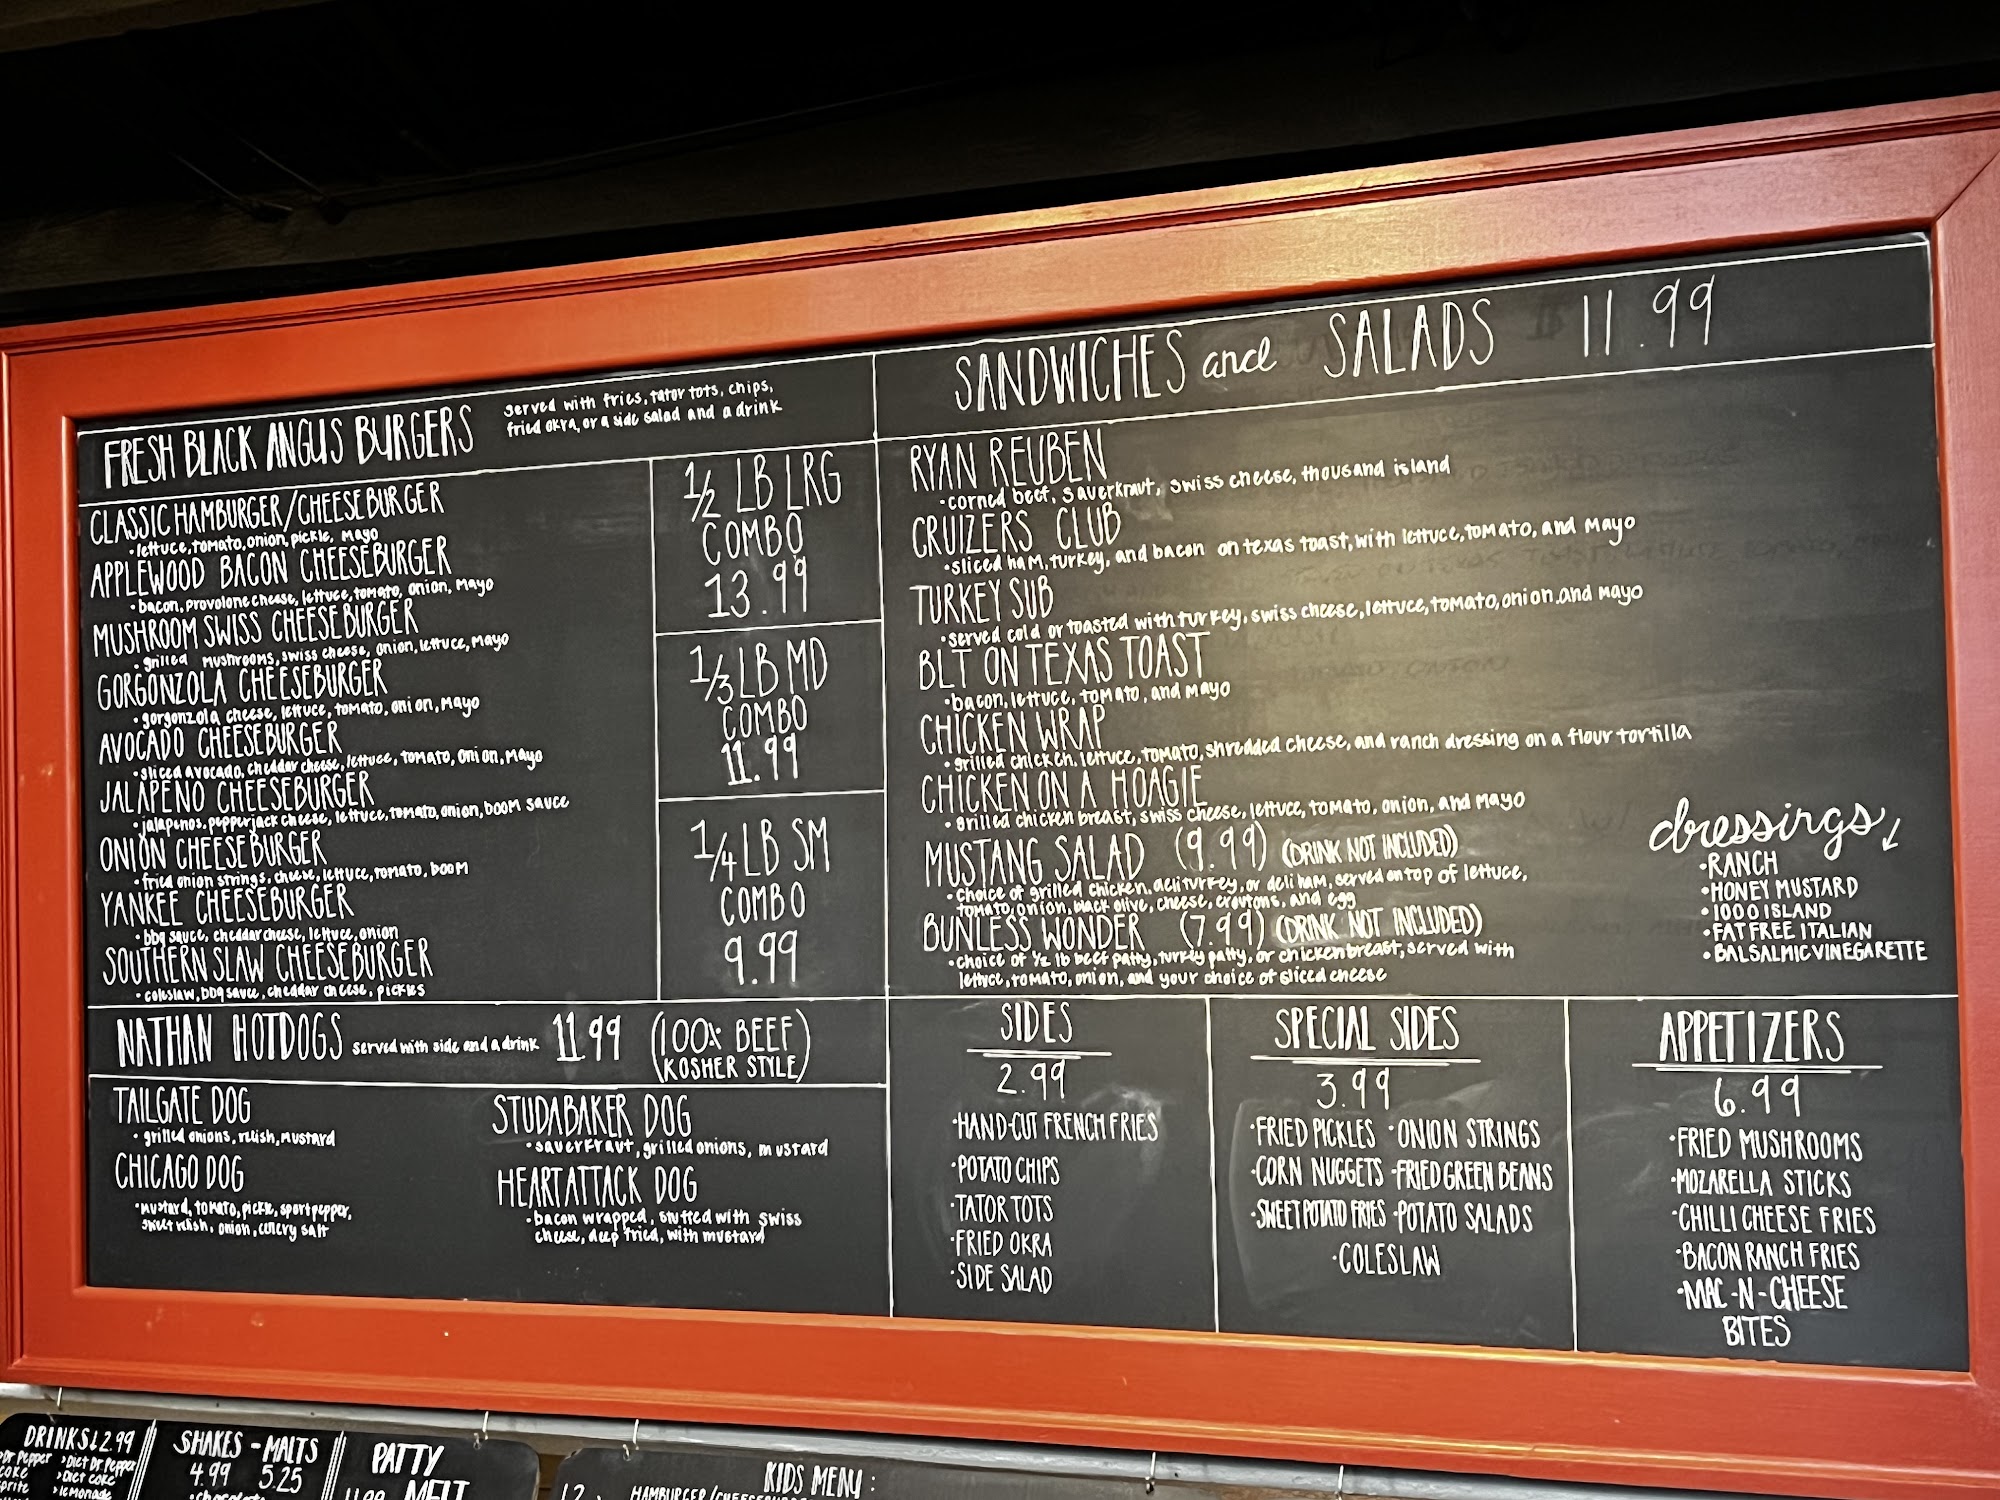 FRESH BLACK ANGUS BURGERS
served with fries, tator tots, chips,
fried okra, or a side salad and a drink
CLASSIC HAMBURGER/CHEESEBURGER
• lettuce, tomato, onion, pickle, mayo
APPLEWOOD BACON CHEESEBURGER
• bacon, provolone cheese, lettuce, tomato, onion, mayo
MUSHROOM SWISS CHEESEBURGER
• grilled mushrooms, swiss cheese, onion, lettuce, mayo
GORGONZOLA CHEESEBURGER
• gorgonzola cheese, lettuce, tomato, onion, mayo
AVOCADO CHEESEBURGER
• sliced avocado, cheddar cheese, lettuce, tomato, onion, mayo
JALAPENO CHEESEBURGER
• jalapenos, pepperjack cheese, lettuce, tomato, onion, boom sauce
ONION CHEESEBURGER
• fried onion strings, cheese, lettuce, tomato, boom
YANKEE CHEESEBURGER
• bbq sauce, cheddar cheese, lettuce, onion
SOUTHERN SLAW CHEESEBURGER
• coleslaw, bbq sauce, cheddar cheese, pickles
1/2 LB LRG
COMBO
13.99
1/3 LB MD
COMBO
11.99
1/4 LB SM
COMBO
9.99
NATHAN HOTDOGS served with side and a drink 11.99 (100% BEEF)
(KOSHER STYLE)
TAILGATE DOG
• grilled onions, relish, mustard
CHICAGO DOG
• mustard, tomato, pickle, sport pepper,
sweet relish, onion, celery salt
STUDABAKER DOG
• sauerkraut, grilled onions, mustard
HEART ATTACK DOG
• bacon wrapped, stuffed with swiss
cheese, deep fried, with mustard
SANDWICHES and SALADS 11.99
RYAN REUBEN
• corned beef, sauerkraut, swiss cheese, thousand island
CRUIZERS CLUB
• sliced ham, turkey, and bacon on texas toast, with lettuce, tomato, and mayo
TURKEY SUB
• served cold or toasted with turkey, swiss cheese, lettuce, tomato, onion, and mayo
BLT ON TEXAS TOAST
• bacon, lettuce, tomato, and mayo
CHICKEN WRAP
• grilled chicken, lettuce, tomato, shredded cheese, and ranch dressing on a flour tortilla
CHICKEN ON A HOAGIE
• grilled chicken breast, swiss cheese, lettuce, tomato, onion, and mayo
MUSTANG SALAD (9.99) (DRINK NOT INCLUDED)
• choice of grilled chicken, deli turkey, or deli ham, served on top of lettuce,
tomato, onion, black olive, cheese, croutons, and egg
BUNLESS WONDER (7.99) (DRINK NOT INCLUDED)
• choice of 1/2 lb beef patty, turkey patty, or chicken breast, served with
lettuce, tomato, onion, and your choice of sliced cheese
dressings
• RANCH
• HONEY MUSTARD
• 1000 ISLAND
• FAT FREE ITALIAN
• BALSALMIC VINEGARETTE
SIDES
2.99
• HAND-CUT FRENCH FRIES
• POTATO CHIPS
• TATOR TOTS
• FRIED OKRA
• SIDE SALAD
SPECIAL SIDES
3.99
• FRIED PICKLES • ONION STRINGS
• CORN NUGGETS • FRIED GREEN BEANS
• SWEET POTATO FRIES • POTATO SALADS
• COLESLAW
APPETIZERS
6.99
• FRIED MUSHROOMS
• MOZARELLA STICKS
• CHILLI CHEESE FRIES
• BACON RANCH FRIES
• MAC-N-CHEESE
BITES
DRINKS 2.99
Dr Pepper › Diet Dr Pepper
coke › Diet coke
sprite › lemonade
SHAKES - MALTS
4.99 5.25
PATTY
MELT
11.99
KIDS MENU: